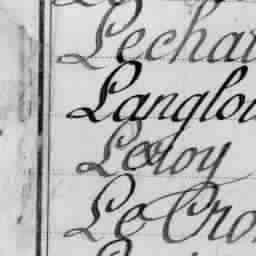 Lechat
Langloi
Leroy
Le Cro